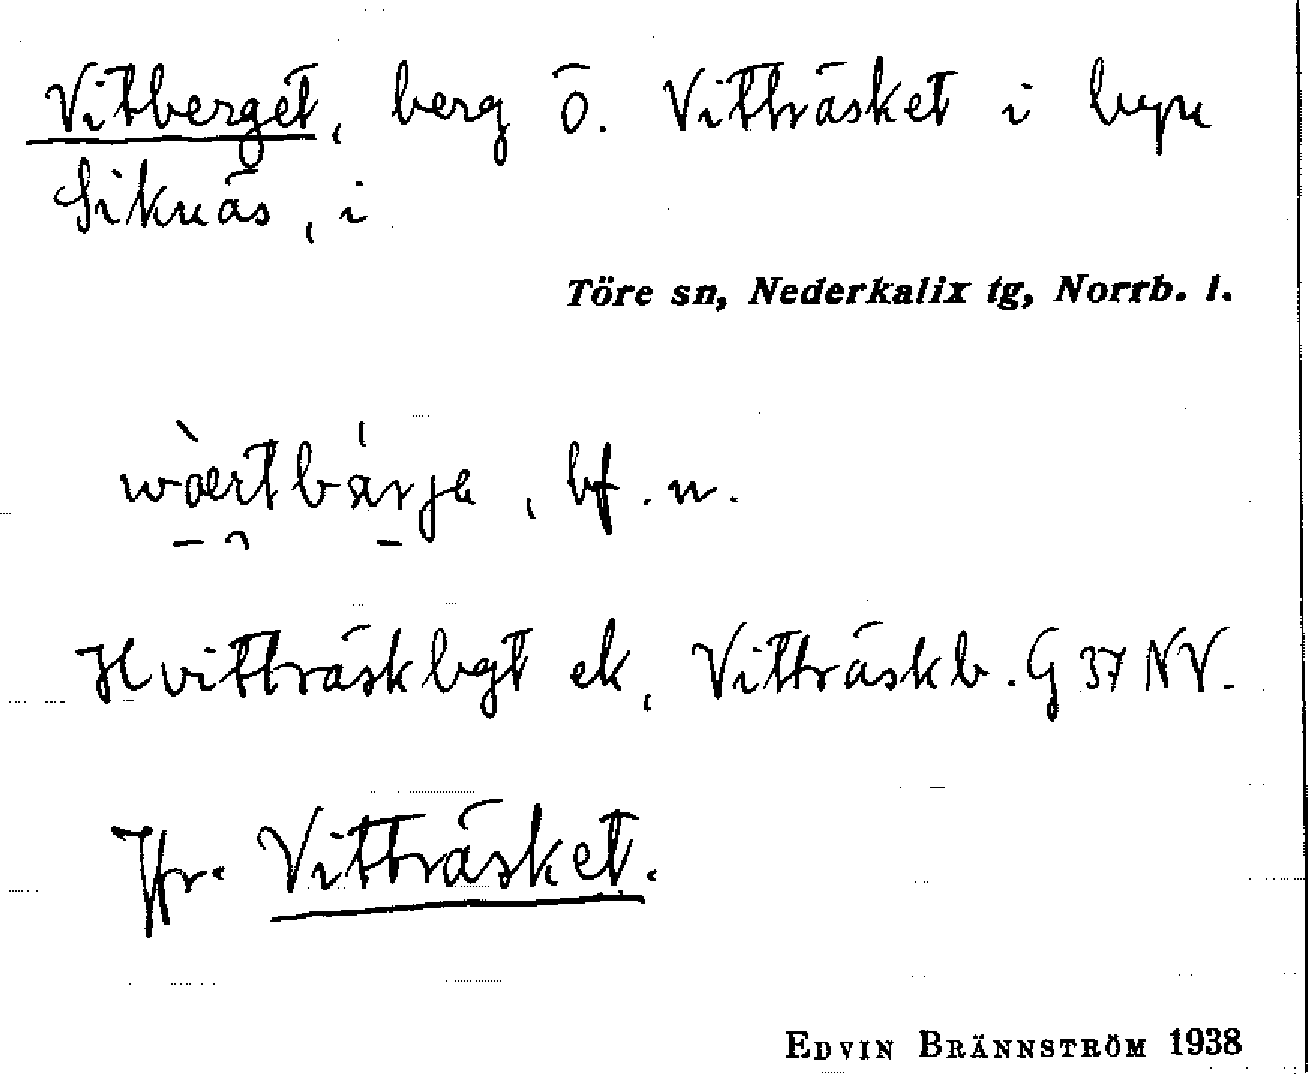 Vitberget, berg ö. Vitträsket i byn
Siknäs, i
Töre sn, Nederkalix tg, Norrb. l.
bf. n.
Hvitträskbgt ek, Vitträskb. G 37 NV.
Jfr. Vitträsket.
EDVIN BRÄNNSTRÖM 1938